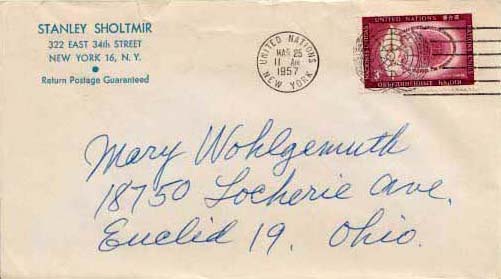 STANLEY SHOLTMIR
322 EAST 34th STREET
NEW YORK 16, N. Y.
Return Postage Guaranteed
UNITED NATIONS
MAR 25
11 AM
1957
NEW YORK
UNITED NATIONS
3¢
Mary Wohlgemuth
18750 Locherie Ave.
Euclid 19. Ohio.